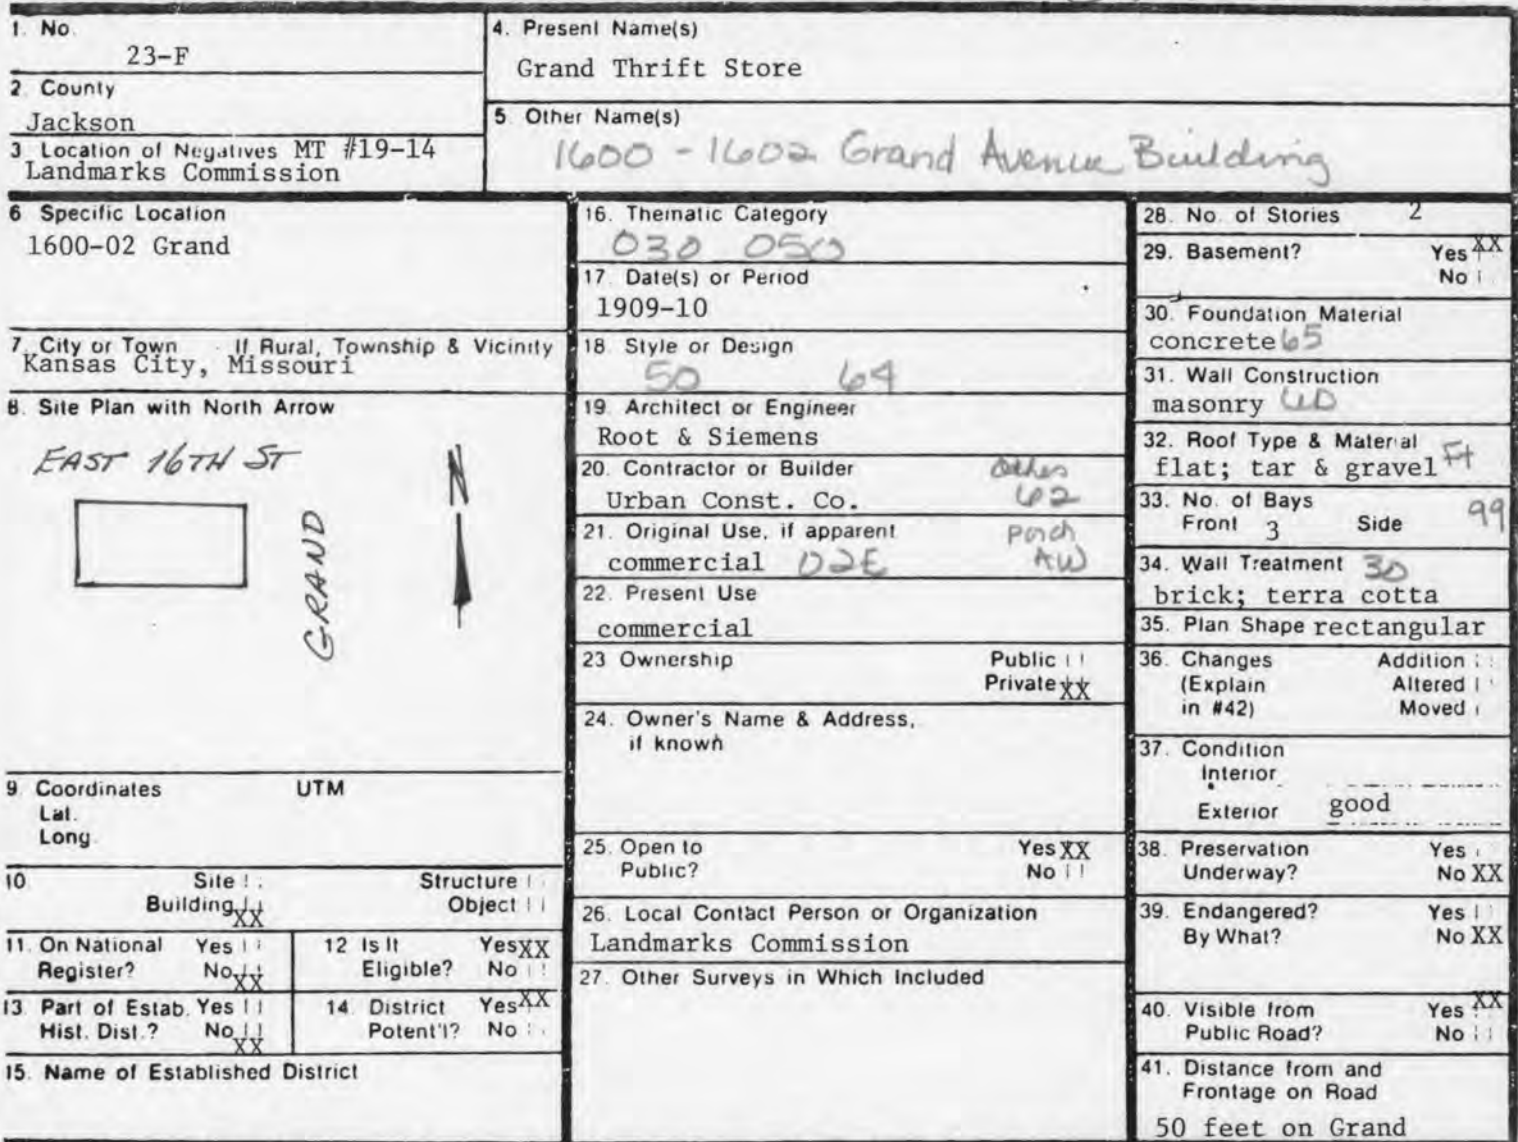 1. No.
23-F
2. County
Jackson
3 Location of Negatives MT #19-14
Landmarks Commission
4. Present Name(s)
Grand Thrift Store
5 Other Name(s)
1600 - 1602 Grand Avenue Building
6 Specific Location
1600-02 Grand
7. City or Town If Rural, Township & Vicinity
Kansas City, Missouri
8. Site Plan with North Arrow
EAST 16TH ST
GRAND
N
9 Coordinates UTM
Lat.
Long.
10 Site Structure
Building XX Object
11. On National Yes
Register? No XX
12 Is It Yes XX
Eligible? No
13. Part of Estab. Yes
Hist. Dist.? No XX
14. District Yes XX
Potent'l? No
15. Name of Established District
16. Thematic Category
030 050
17. Date(s) or Period
1909-10
18. Style or Design
50 64
19. Architect or Engineer
Root & Siemens
20. Contractor or Builder Other
Urban Const. Co. 62
21. Original Use, if apparent porch
commercial 02E AW
22. Present Use
commercial
23 Ownership Public
Private XX
24. Owner's Name & Address,
if known
25. Open to Yes XX
Public? No
26. Local Contact Person or Organization
Landmarks Commission
27. Other Surveys in Which Included
28. No. of Stories 2
29. Basement? Yes XX
No
30. Foundation Material
concrete 65
31. Wall Construction
masonry
32. Roof Type & Material
flat; tar & gravel Ft
33. No. of Bays 99
Front 3 Side
34. Wall Treatment 30
brick; terra cotta
35. Plan Shape rectangular
36. Changes Addition
(Explain Altered
in #42) Moved
37. Condition
Interior
Exterior good
38. Preservation Yes
Underway? No XX
39. Endangered? Yes
By What? No XX
40. Visible from Yes XX
Public Road? No
41. Distance from and
Frontage on Road
50 feet on Grand